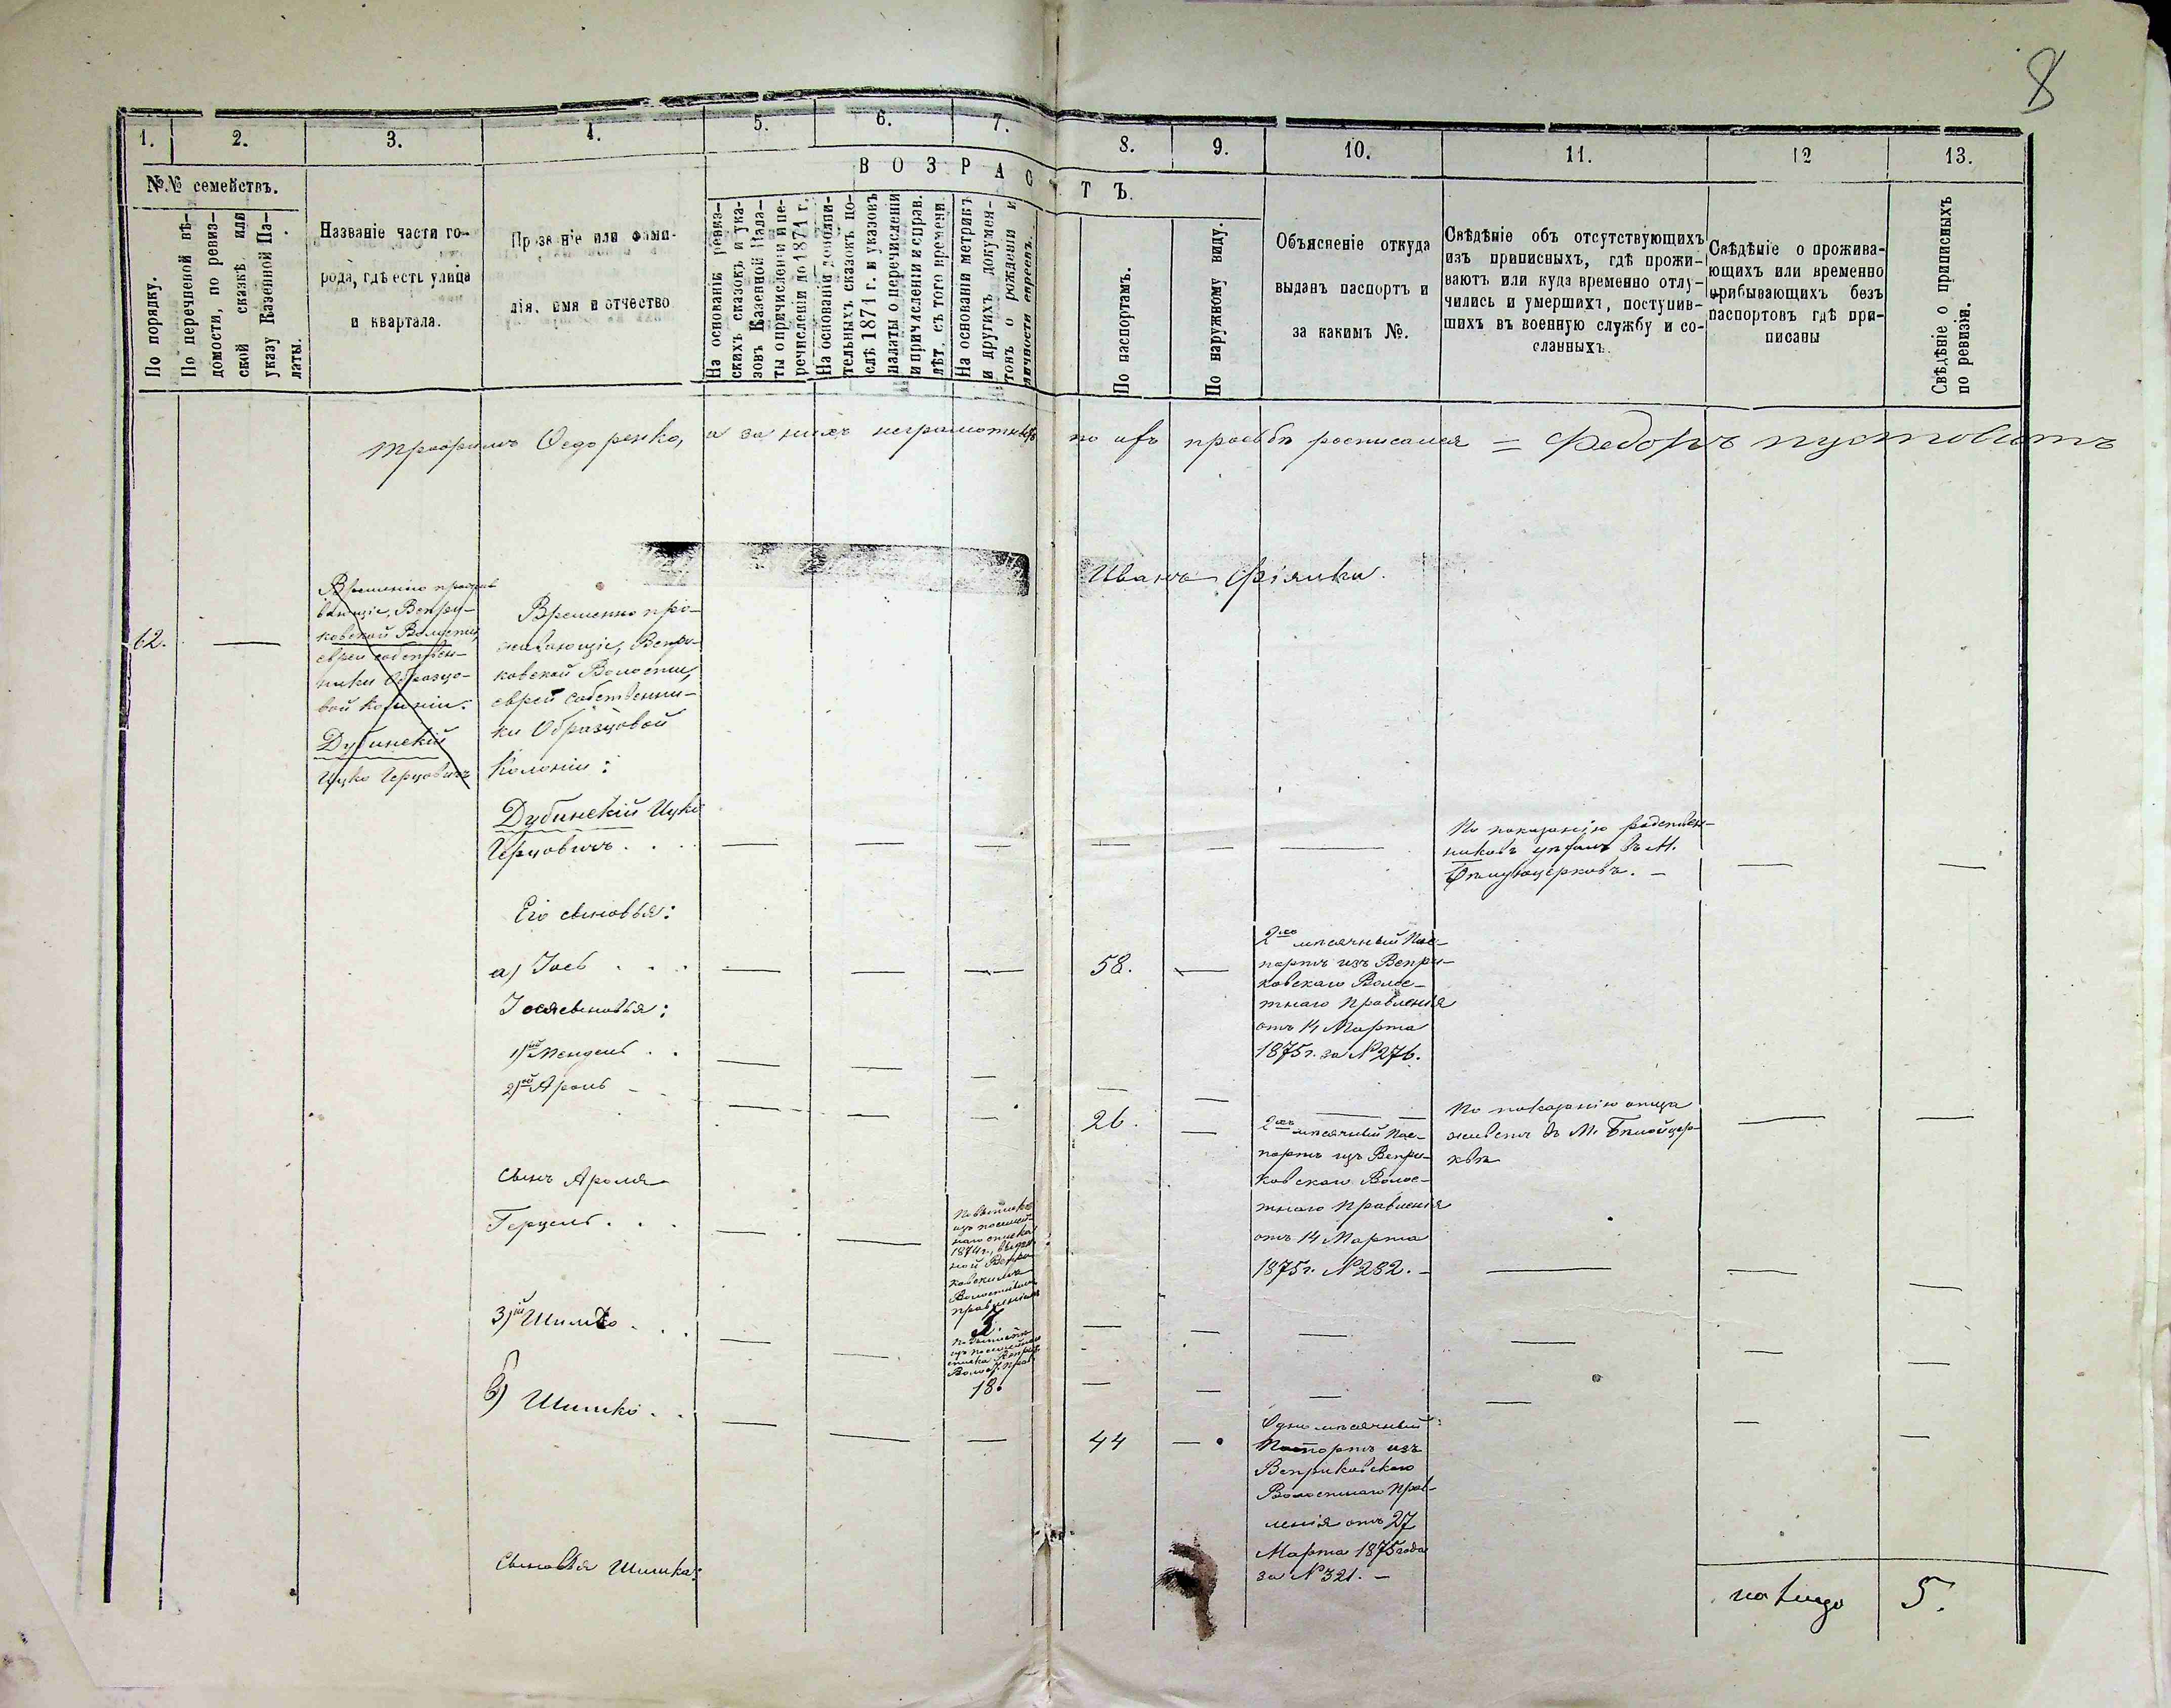 8
1. 2. 3. 4. 5. 6. 7. 8. 9. 10. 11. 12 13.
№№ семействъ.
ВОЗРАСТЪ.
По порядку.
По перечневой вѣ-
домости, по ревиз-
ской сказкѣ или
указу Казенной Па-
латы.
Названіе части го-
рода, гдѣ есть улица
и квартала.
Прозваніе или фами-
лія, имя и отчество
На основаніи ревиз-
скихъ сказокъ и ука-
зовъ Казенной Пала-
ты о причисленіи и пе-
речисленіи до 1871 г.
На основаніи дополни-
тельныхъ сказокъ по-
слѣ 1871 г. и указовъ
палаты о перечисленіи
и причисленіи и справ.
лѣт. съ того времени.
На основаніи метрикъ
и другихъ докумен-
товъ о рожденіи и
личности евреевъ.
По паспортамъ.
По наружному виду.
Объясненіе откуда
выданъ паспортъ и
за какимъ №.
Свѣдѣніе объ отсутствующихъ
изъ приписныхъ, гдѣ прожи-
ваютъ или куда временно отлу-
чились и умершихъ, поступив-
шихъ въ военную службу и со-
сланныхъ.
Свѣдѣніе о прожива-
ющихъ или временно
прибывающихъ безъ
паспортовъ гдѣ при-
писаны
Свѣдѣніе о приписныхъ
по ревизіи.
Трофимъ Федоренко, а за нихъ неграмотныхъ по ихъ просьбѣ росписался = Федоръ Пустовитъ
Иванъ Фіялки.
62.
ковской Волости,
евреи собствен-
ники Образцо-
вой Колоніи.
Дубинскій
Ицко Герцовичъ
Временно про-
живающіе, Вепри-
ковской Волости,
евреи собственни-
ки Образцовой
Колоніи:
Дубинскій Ицко
Герцовичъ . .
По показанію родствен-
никовъ умеръ въ М.
Его сыновья:
а) Іось . . .
58.
2хъ мѣсячный Пас-
портъ изъ Вепри-
ковскаго Волос-
тнаго Правленія
отъ 14 Марта
1875 г. за № 276.
Іося сыновья:
1)ый Мендель . .
2)ой Аронь
26.
2хъ мѣсячный Пас-
портъ изъ Вепри-
ковскаго Волос-
тнаго Правленія
отъ 14 Марта
1875 г. № 282.
По показанію отца
живетъ въ М. Бѣлойцер-
квѣ
Сынъ Ароля
Герцель . . .
изъ посемей-
наго списка
1874 г., выдан-
ной Вепри-
ковскимъ
Волостнымъ
правленіемъ
3.
3)ій Шимко . . .
18.
б) Шимко . .
44
Одномѣсячный
Паспортъ изъ
Веприковскаго
Волостнаго Прав-
ленія отъ 27
Марта 1875 года
за № 321. –
Сыновья Шимка:
на лицо 5.